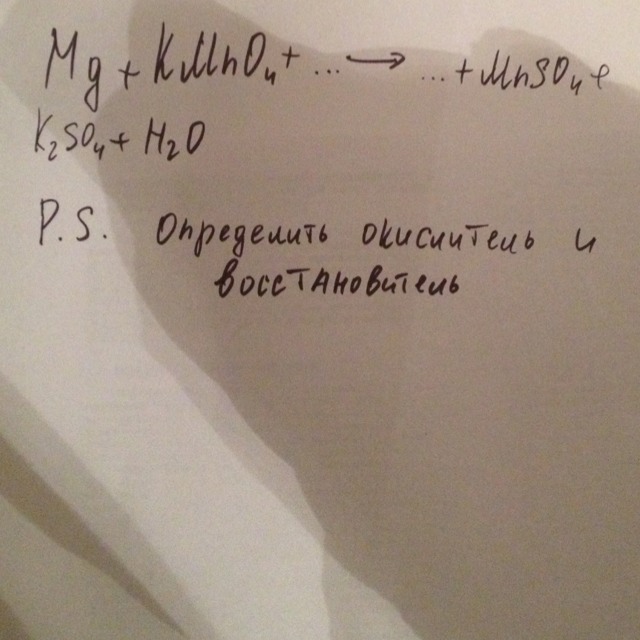 Mg + KMnO₄ + ... → ... + MnSO₄ +
K₂SO₄ + H₂O
P.S. Определить окислитель и
восстановитель